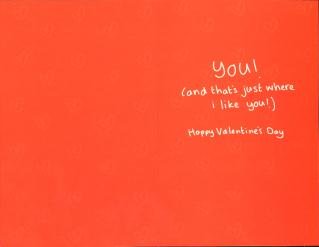 You!
(and that's just where
I like you!)
Happy Valentine's Day